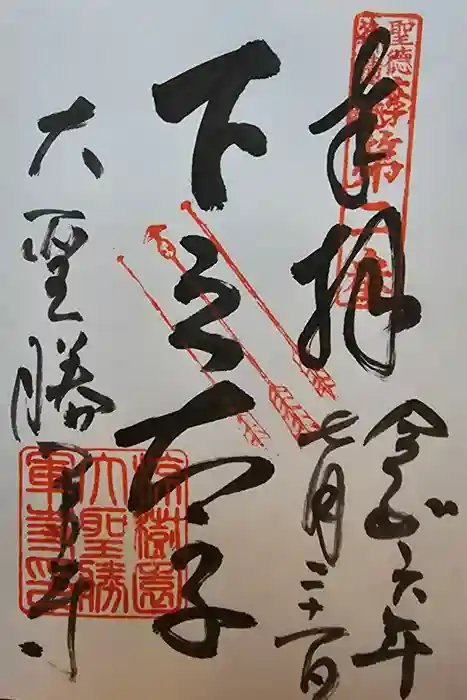 聖徳太子
奉拝
令和六年
七月二十一日
下之太子
大聖勝軍寺
大聖勝
軍寺印